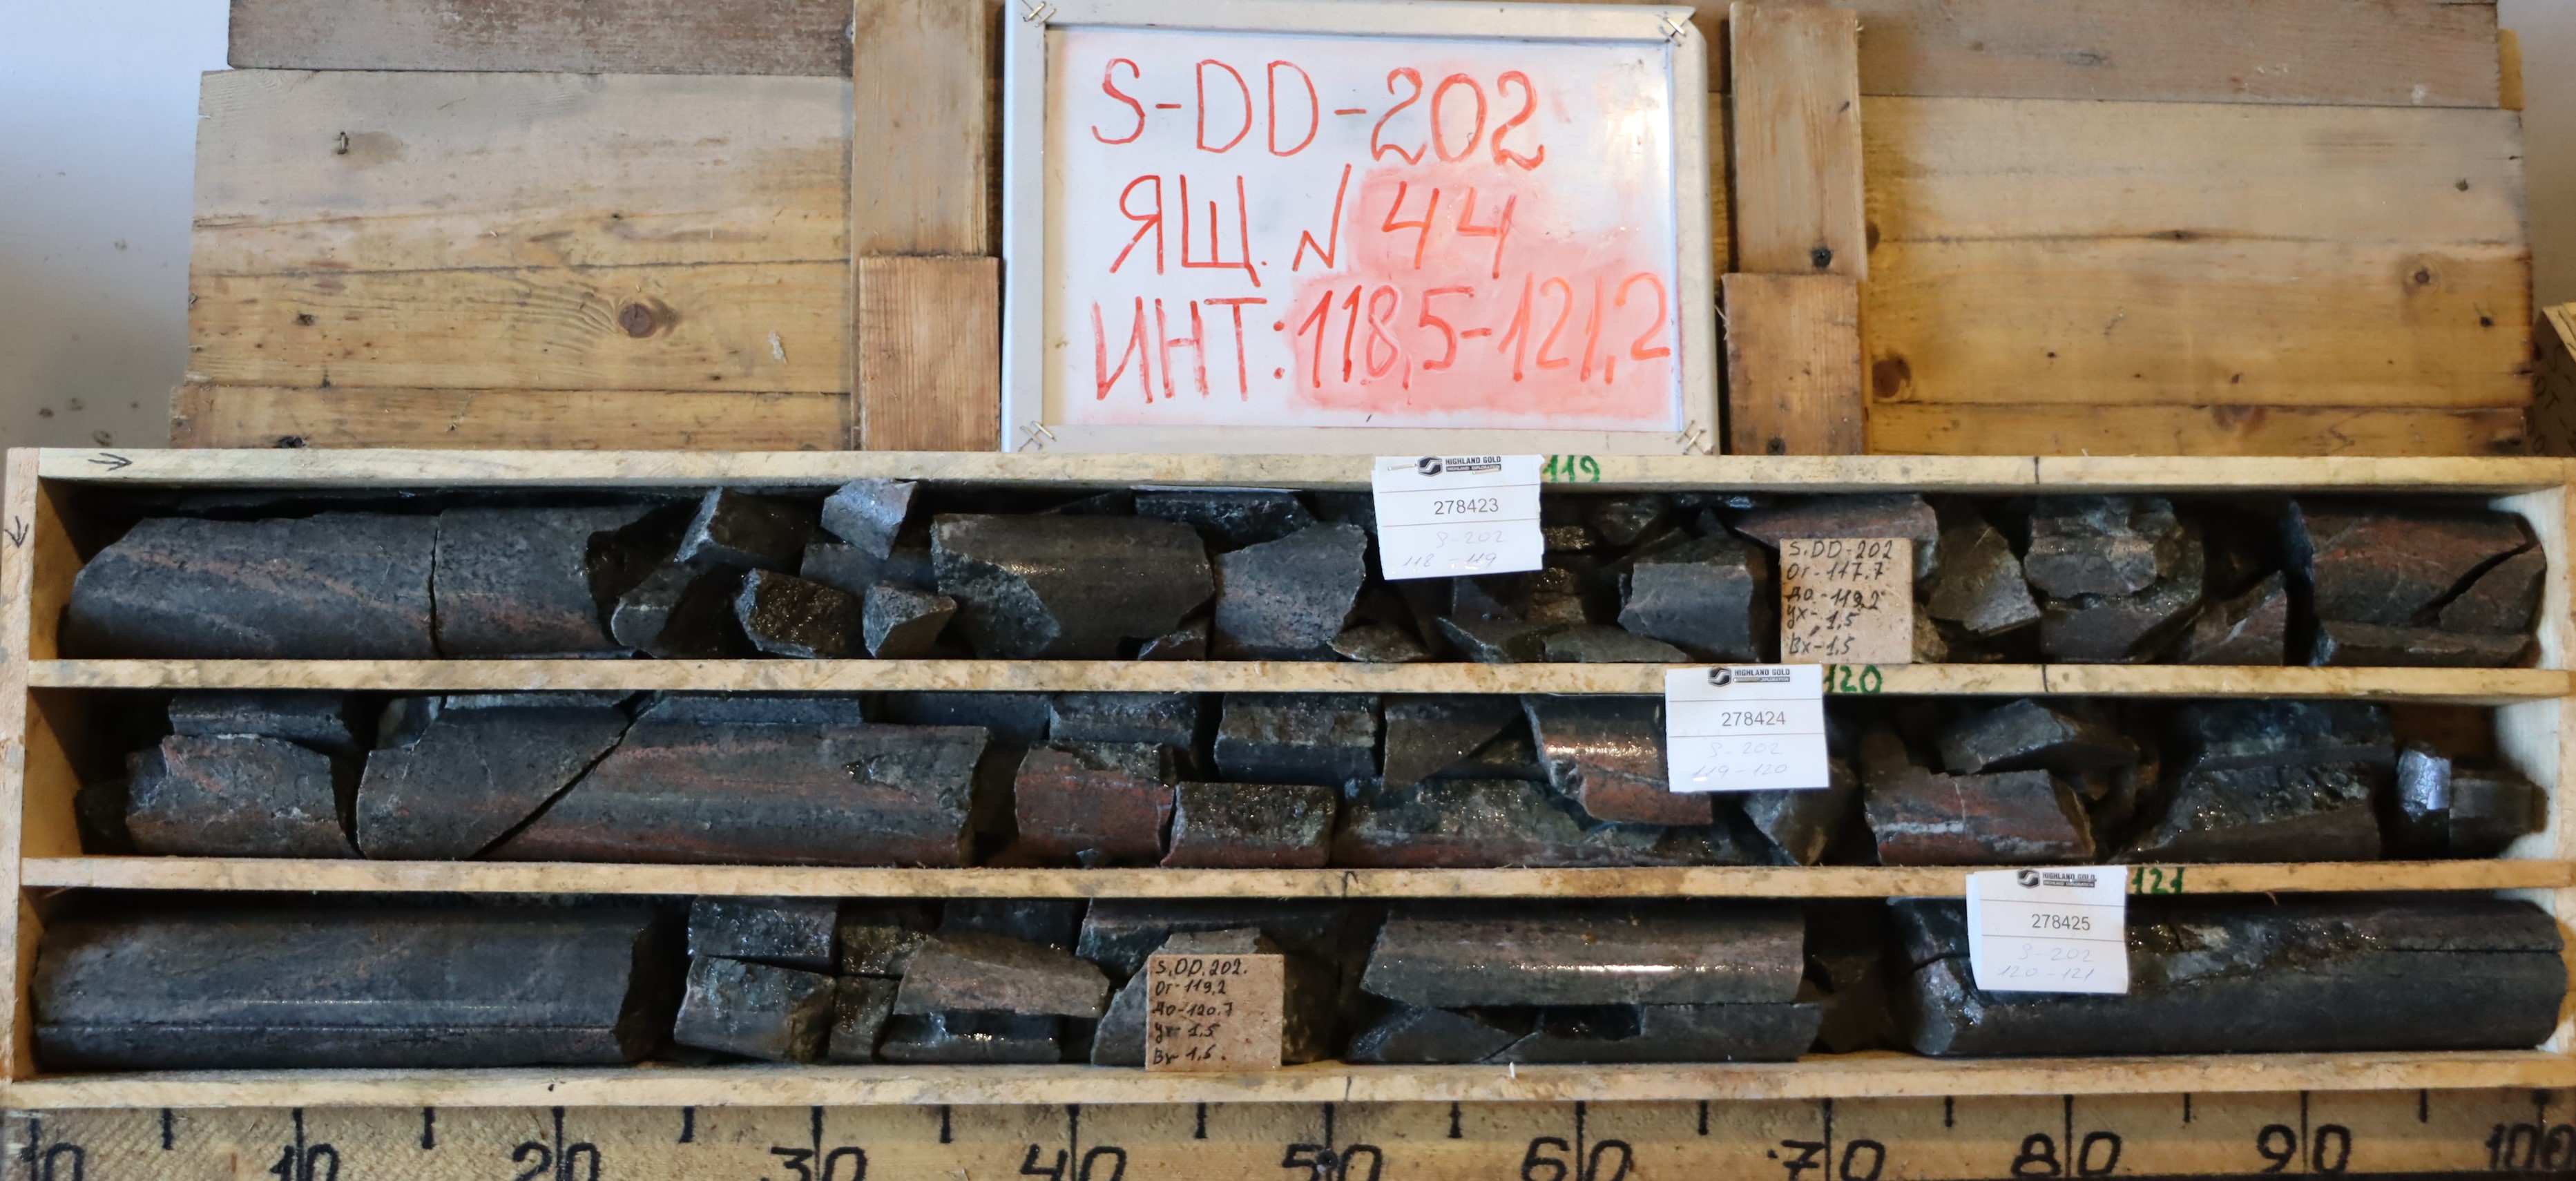 S-DD-202
ЯЩ. N 44
ИНТ: 118,5-121,2
HIGHLAND GOLD
119
278423
S-202
118-119
S.DD-202
От-117.7
До-119,2
Ух-1,5
Вх-1,5
HIGHLAND GOLD
120
278424
S-202
119-120
HIGHLAND GOLD
121
278425
S-202
120-121
S.DD.202.
От-119,2
До-120.7
Ух-1.5
Вх-1,5.
0 10 20 30 40 50 60 70 80 90 100